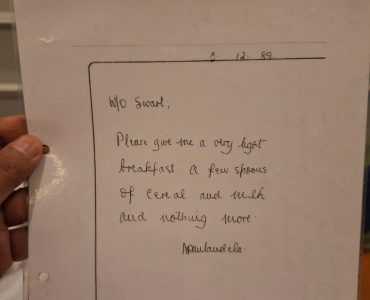 12-89
W/O Swart,
Please give me a very light
breakfast. A few spoons
of cereal and milk
and nothing more.
NRMandela